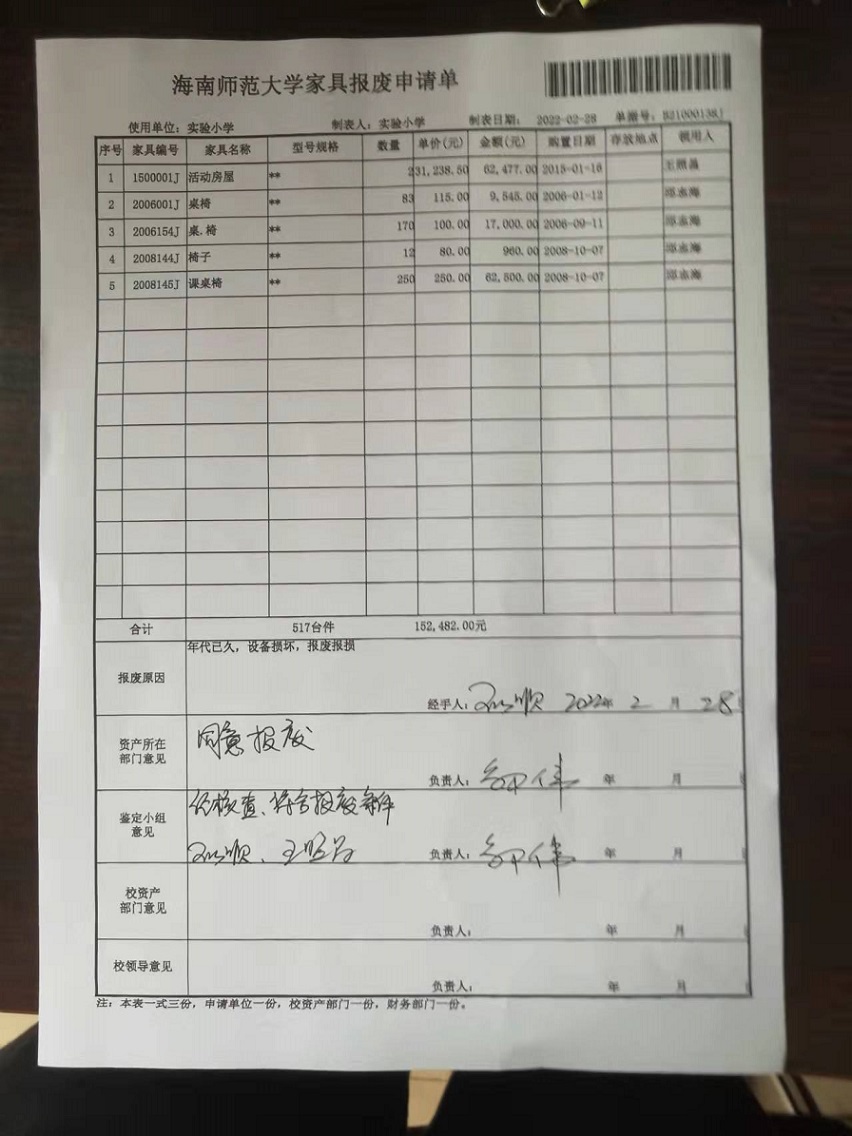 海南师范大学家具报废申请单
使用单位：实验小学 制表人：实验小学 制表日期： 2022-02-28 单据号：
序号 家具编号 家具名称 型号规格 数量 单价(元) 金额(元) 购置日期 存放地点 领用人
1 1500001J 活动房屋 ** 2 31,238.50 62,477.00 2015-01-16
2 2006001J 桌椅 ** 83 115.00 9,545.00 2006-01-12
3 2006154J 桌.椅 ** 170 100.00 17,000.00 2006-09-11
4 2008144J 椅子 ** 12 80.00 960.00 2008-10-07
5 2008145J 课桌椅 ** 250 250.00 62,500.00 2008-10-07
合计 517台件 152,482.00元
报废原因 年代已久，设备损坏，报废报损
经手人： 2022年 2 月 28
资产所在部门意见 同意报废
负责人： 年 月
鉴定小组意见 经核查、符合报废条件
负责人： 年 月
校资产部门意见
负责人： 年 月
校领导意见
负责人： 年 月
注：本表一式三份，申请单位一份，校资产部门一份，财务部门一份。